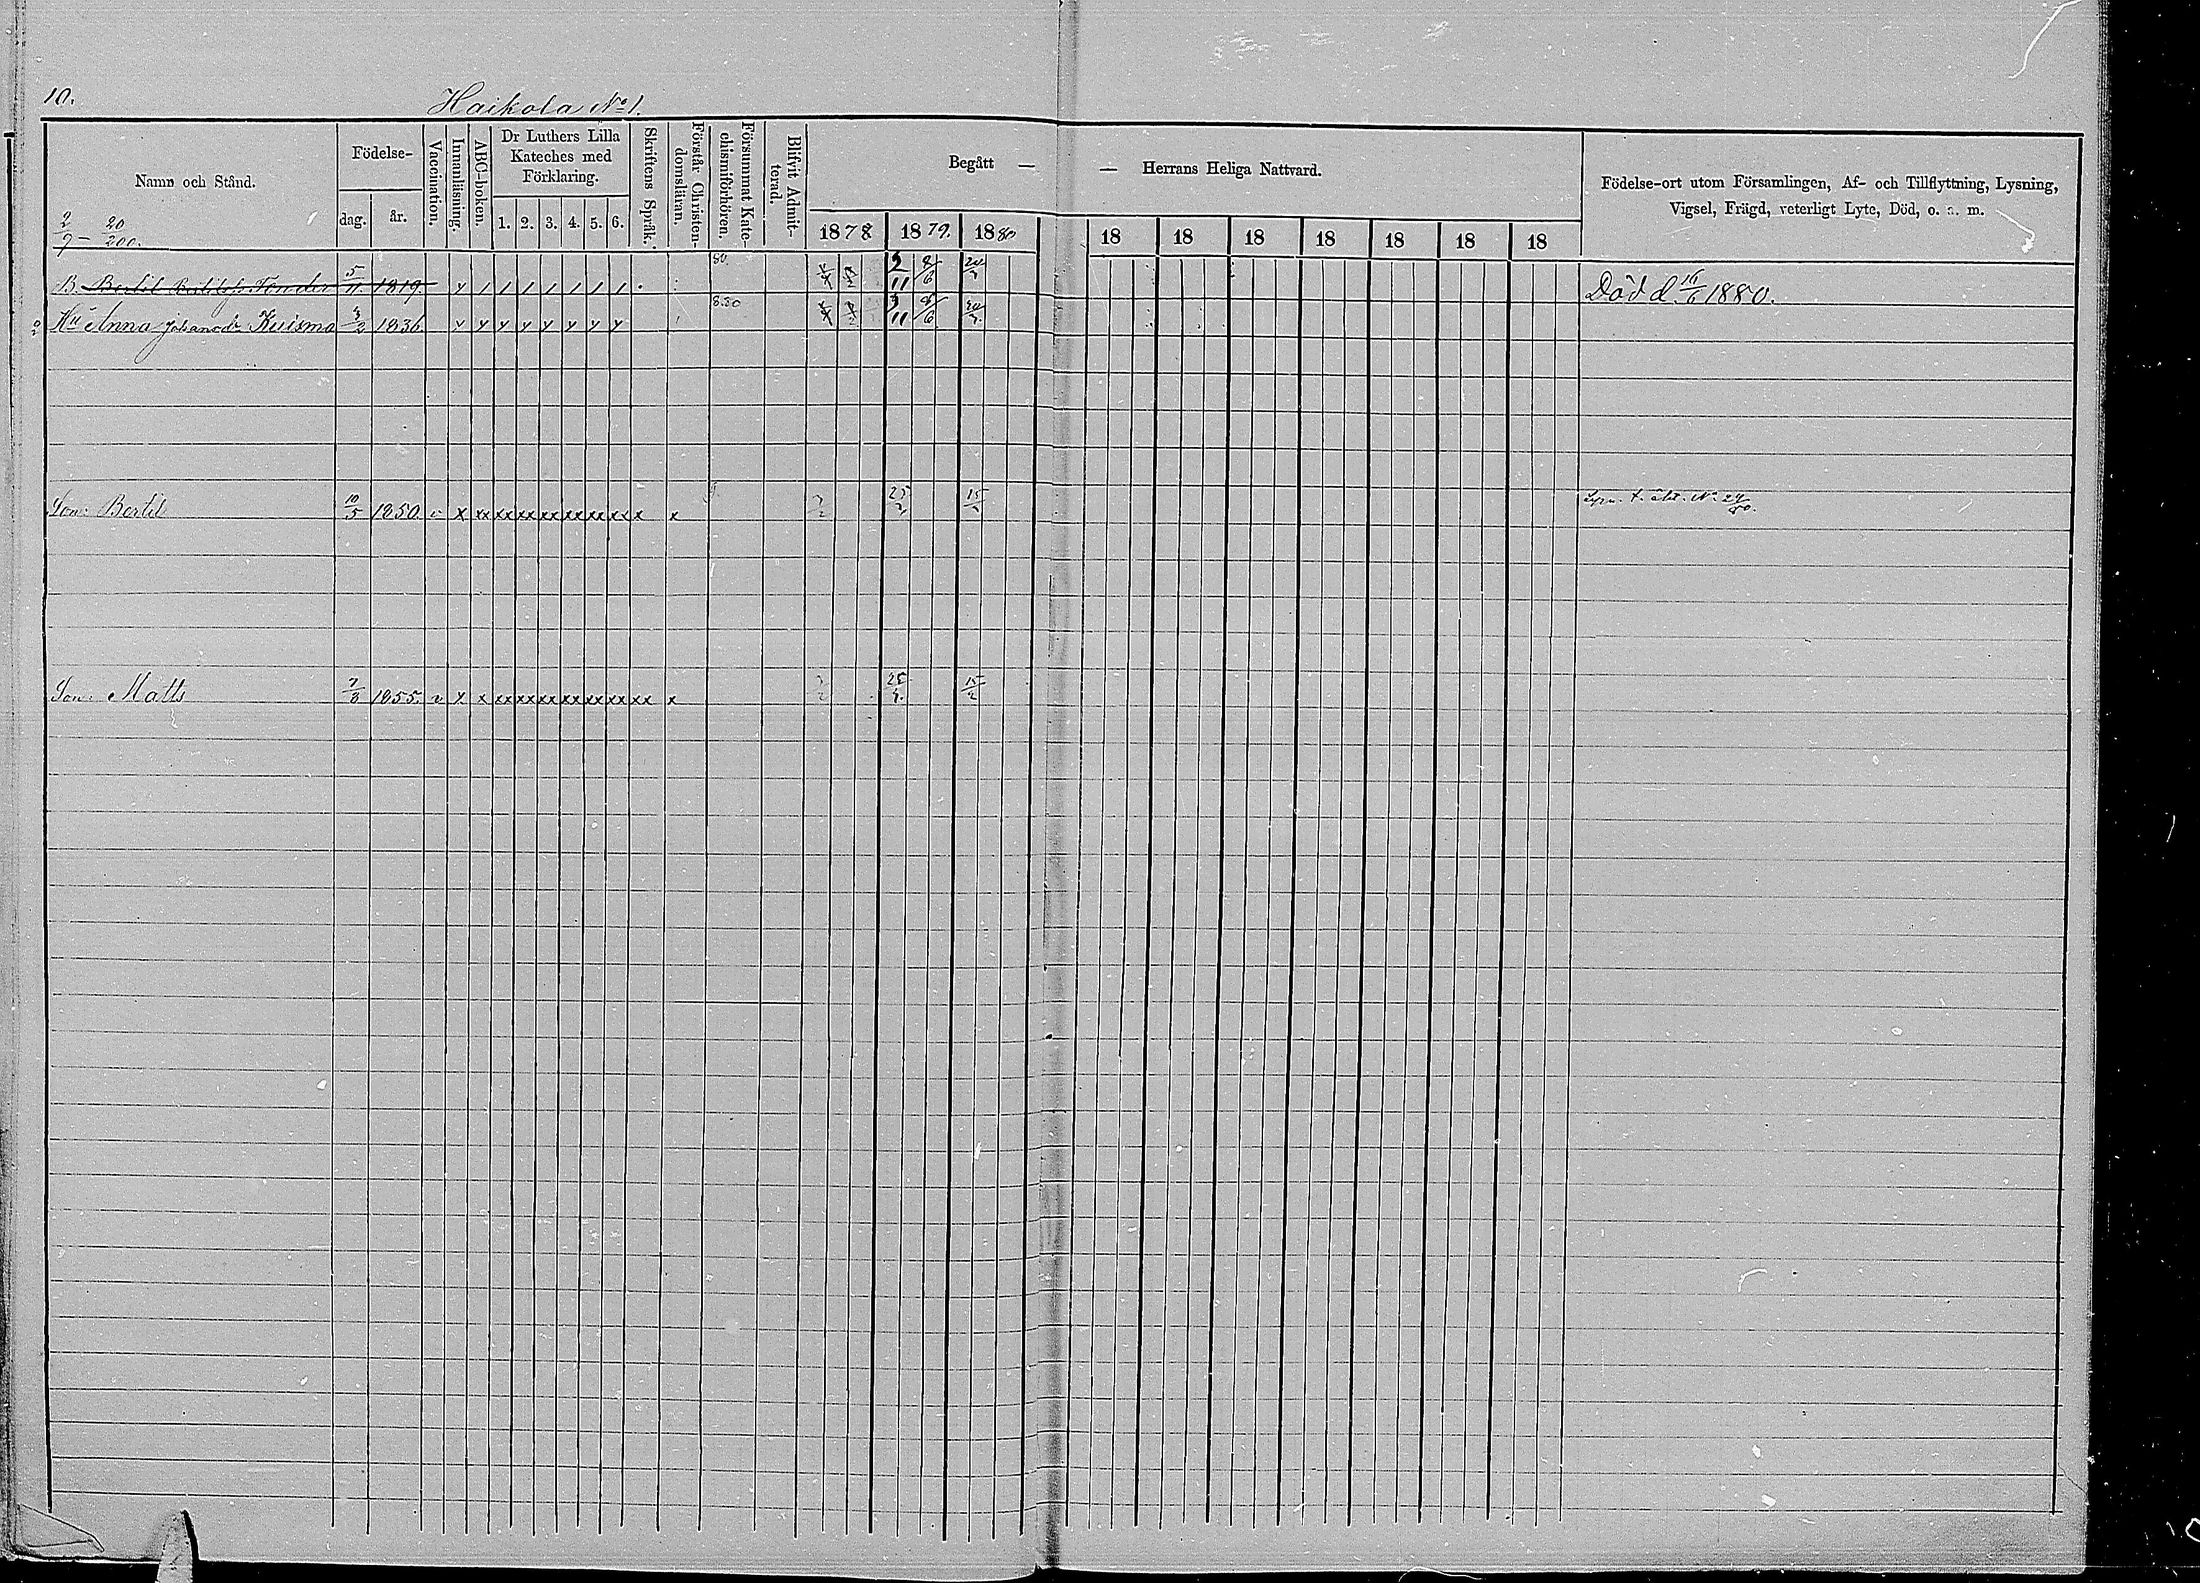 10.
Haikola No 1.
Namn och Stånd.
Födelse-
dag. år.
Vaccination.
Innanläsning.
ABC-boken.
Dr Luthers Lilla Kateches med Förklaring.
1. 2. 3. 4. 5. 6.
Skriftens Språk.
Förstår Christen-domsläran.
Försummat Kate-chismiförhören.
Blifvit Admit-terad.
Begått —
— Herrans Heliga Nattvard.
1878 1879. 1880 18 18 18 18 18 18 18
Födelse-ort utom Församlingen, Af- och Tillflyttning, Lysning,
Vigsel, Frägd, veterligt Lyte, Död, o. s. m.
2/9 — 20/200.
B. Bertil Bertilss. Tonder 5/11 1819. x / / / / / / / 80. 9/11 8/6 Död d. 16/6 1880.
Hu Anna Johansdr Kuisma 1836. y y y y y y y y 8.80 9/11 8/6
Son: Bertil 10/5 1850 v x xx xx xx xx xx xx xx x x 25 15 No 24/80.
Son: Matts 7/8 1855. v x x xx xx xx xx xx xx xx x 25 15/2